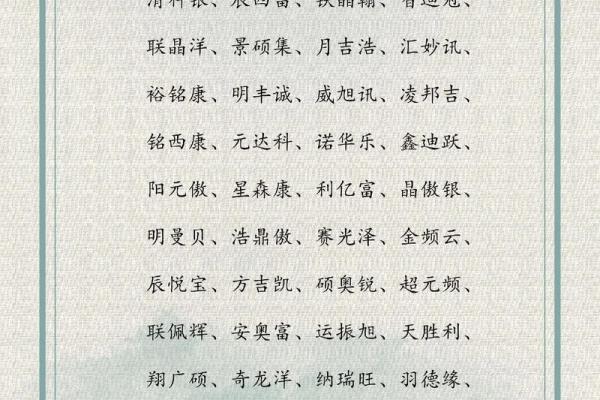 联晶洋、景硕集、月吉浩、汇妙讯、
裕铭康、明丰诚、威旭讯、凌邦吉、
铭西康、元达科、诺华乐、鑫迪跃、
阳元傲、星森康、利亿富、晶傲银、
明曼贝、浩鼎傲、赛光泽、金频云、
辰悦宝、方吉凯、硕奥锐、超元频、
联佩辉、安奥富、运振旭、天胜利、
翔广硕、奇龙洋、纳瑞旺、羽德缘、